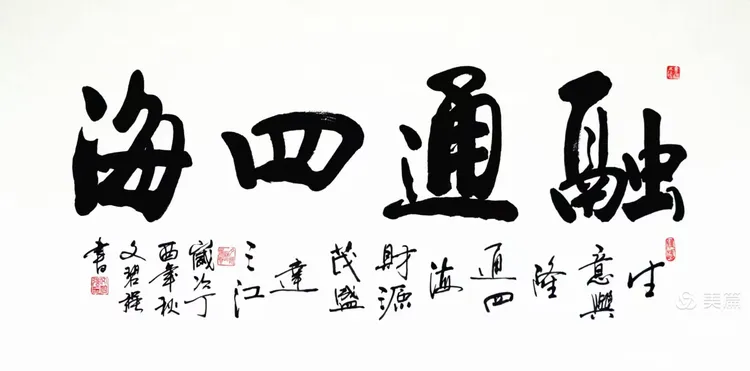 融通四海
生
意興
隆
通四
海
財源
茂盛
達
三江
歲次丁
酉年秋
文碧
書
美篇